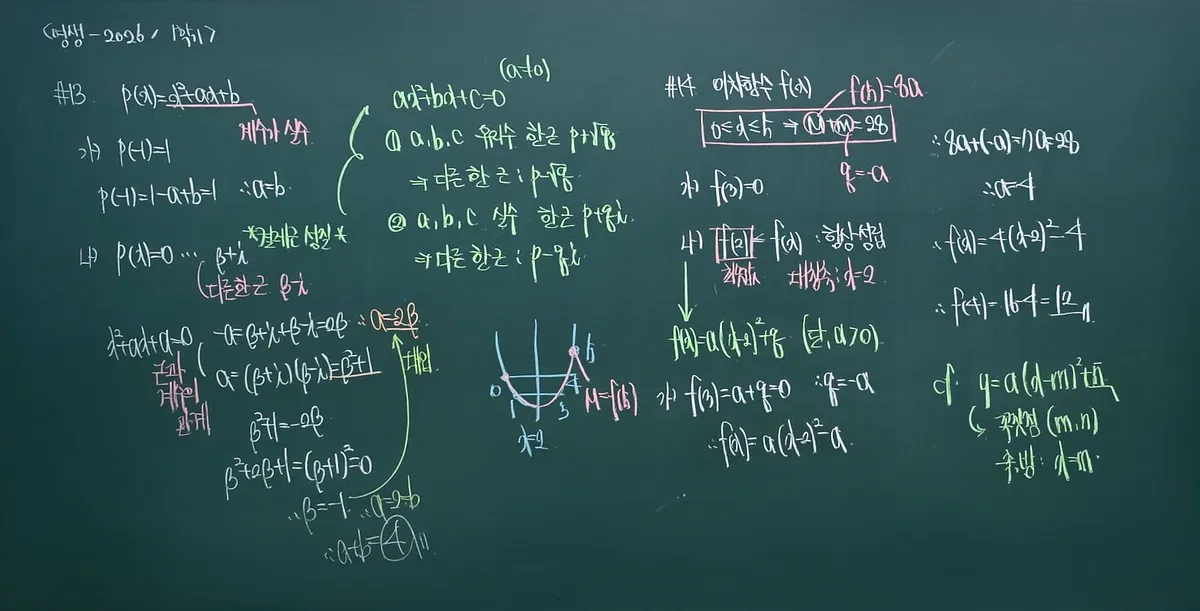 <명생-2026/1학기>
#13. P(x)=x²+ax+b
계수가 실수
가) P(-1)=1
P(-1)=1-a+b=1 ∴a=b.
나) P(x)=0 … β+i
다른한근 β-i
x²+ax+a=0
근과
계수의
관계
-a=β+i+β-i=2β ∴a=-2β
a=(β+i)(β-i)=β²+1
β²+1=-2β
β²+2β+1=(β+1)²=0
∴β=-1 ∴a=2=b
∴a+b=4
대입
(a≠0)
ax²+bx+c=0
① a,b,c 유리수 한근 p+√q
⇒다른한근: p-√q
② a,b,c 실수 한근 p+qi
⇒다른한근: p-qi
*켤레근 성질*
0 1 3 4 5
x=2
M=f(5)
#14. 이차함수 f(x)
f(5)=8a
0≤x≤5 ⇒ M+m=28
q=-a
가) f(3)=0
나) f(2)≤f(x) : 항상성립
최솟값 대칭축: x=2
f(x)=a(x-2)²+q (단, a>0)
가) f(3)=a+q=0 ∴q=-a
∴f(x)=a(x-2)²-a
∴8a+(-a)=7a=28
∴a=4
∴f(x)=4(x-2)²-4
∴f(4)=16-4=12
cf. y=a(x-m)²+n
꼭짓점 (m,n)
축.방: x=m.